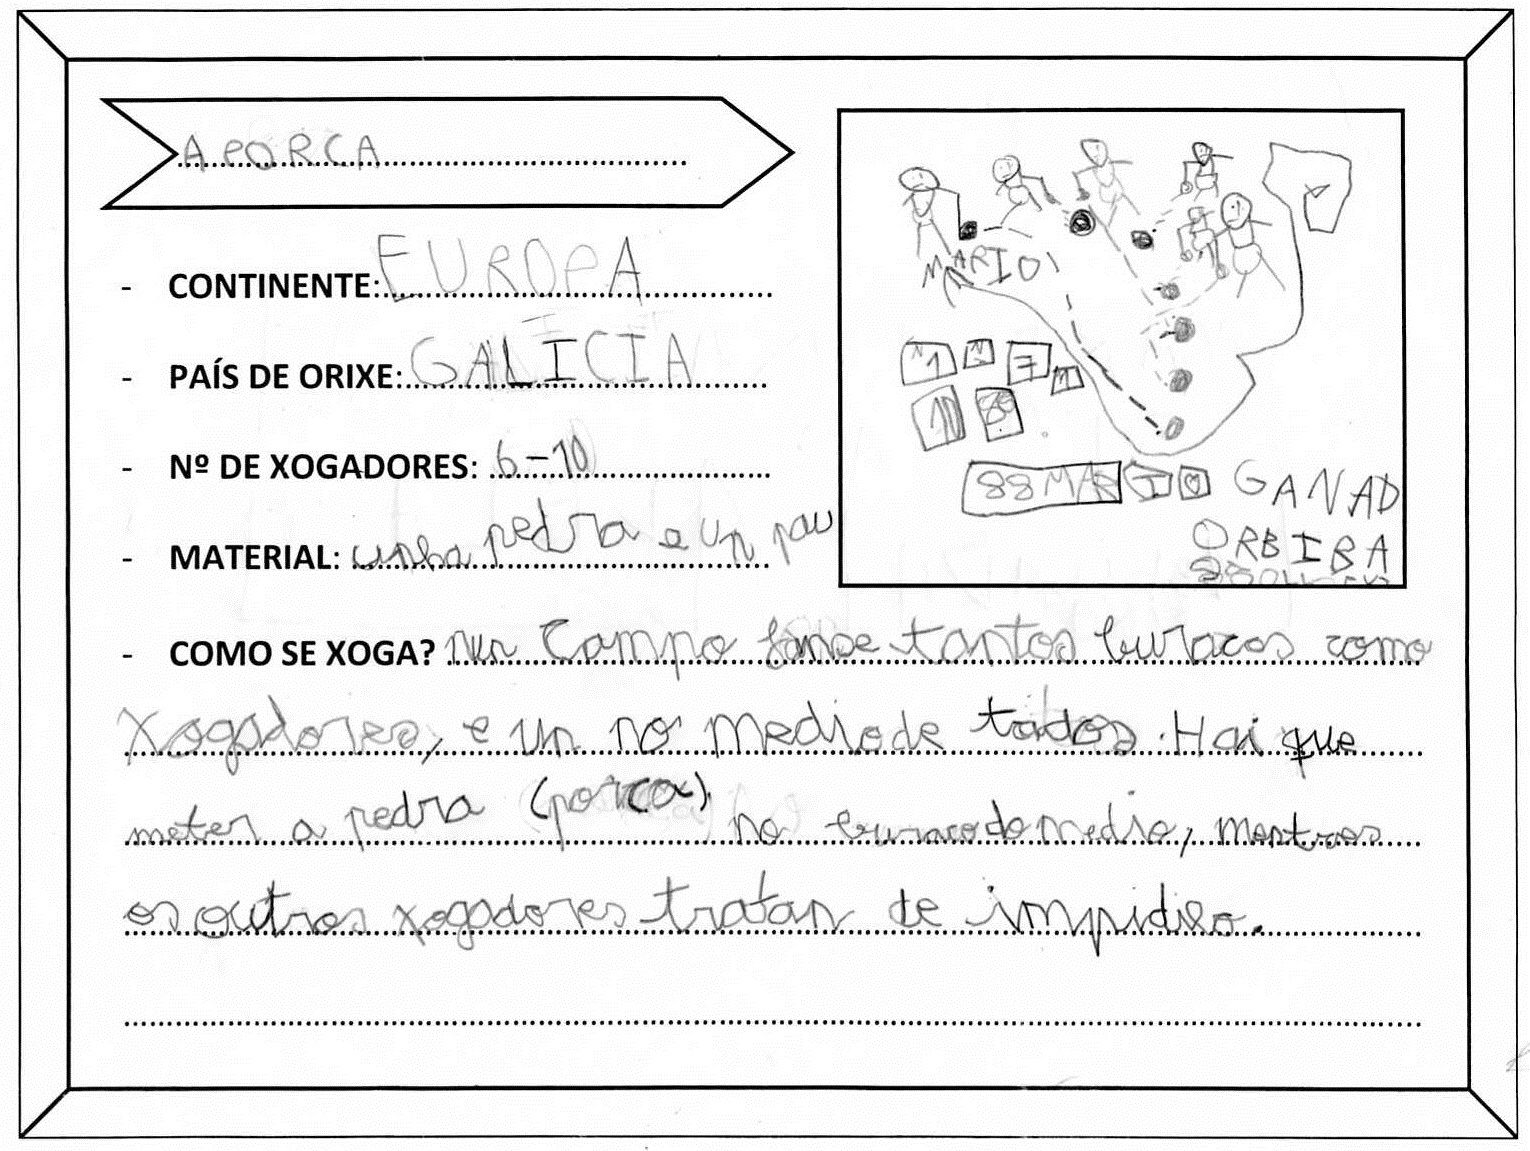 A PORCA
- CONTINENTE: EUROPA
- PAÍS DE ORIXE: GALICIA
- Nº DE XOGADORES: 6-10
- MATERIAL: unha pedra e un pau
- COMO SE XOGA? Nun campo fanse tantos buracos como
xogadores, e un no medio de todos. Hai que
meter a pedra (porca) no buraco do medio, mentras
os outros xogadores tratan de impidilo.
MARIO
N1 N 7 1
10 89
88 MARIO GANAD
OR BIBA